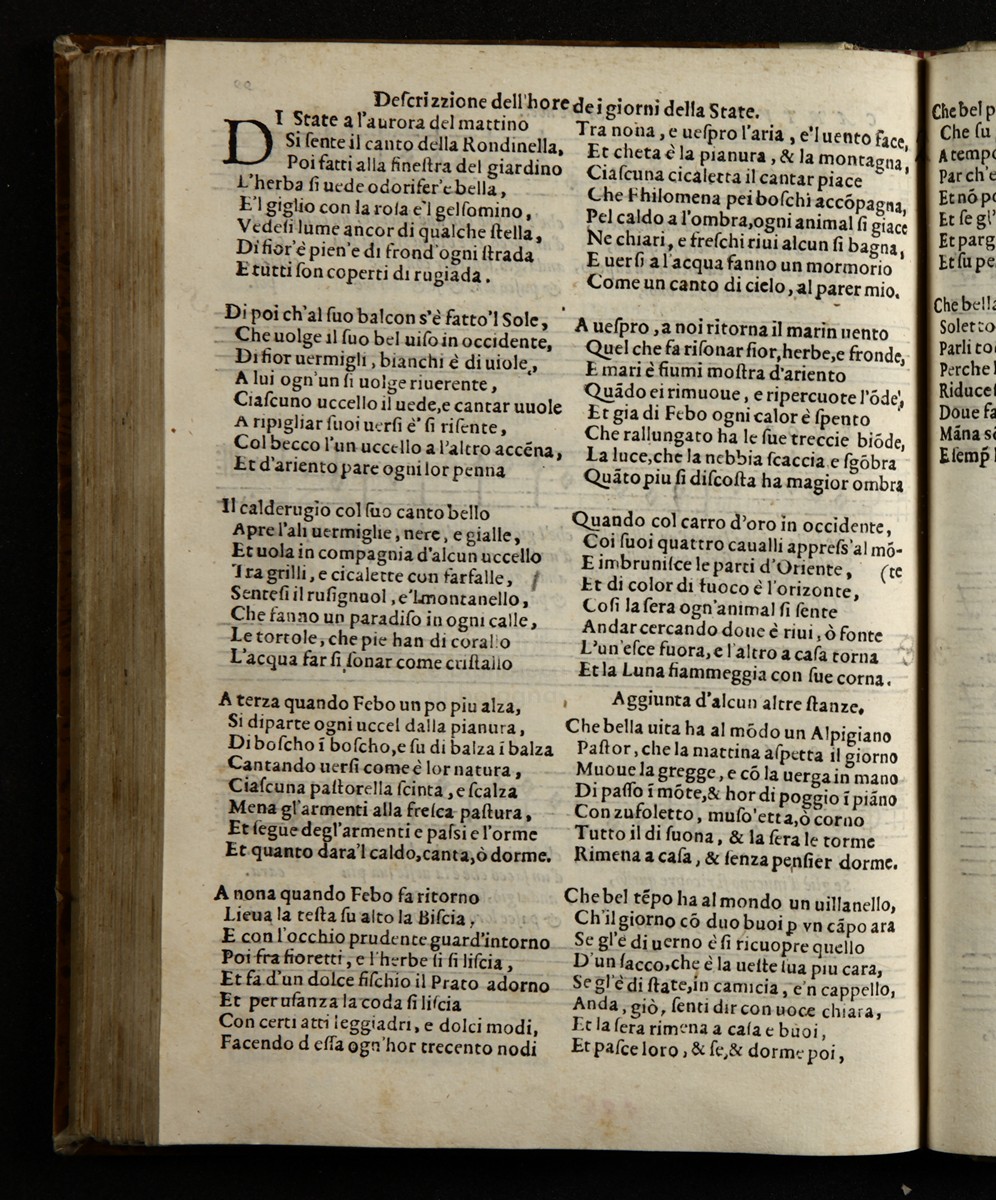 Deſcrizzione dell'hore dei giorni della State.
DI State a l'aurora del mattino
Si ſente il canto della Rondinella,
Poi fatti alla fineſtra del giardino
L'herba ſi uede odorifer'e bella,
E'l giglio con la roſa e'l gelſomino,
Vedeſi lume ancor di qualche ſtella,
Di fior'è pien'e di frond'ogni ſtrada
E tutti ſon coperti di rugiada.
Di poi ch'al ſuo balcon s'è fatto'l Sole,
Che uolge il ſuo bel uiſo in occidente,
Di fior uermigli, bianchi è di uiole,
A lui ogn'un ſi uolge riuerente,
Ciaſcuno uccello il uede,e cantar uuole
A ripigliar ſuoi uerſi è' ſi riſente,
Col becco l'un uccello a l'altro accēna,
Et d'ariento pare ogni lor penna
Il calderugio col ſuo canto bello
Apre l'ali uermiglie, nere, e gialle,
Et uola in compagnia d'alcun uccello
Tra grilli, e cicalette con farfalle,
Senteſi il ruſignuol, e'l montanello,
Che fanno un paradiſo in ogni calle,
Le tortole, che pie han di corallo
L'acqua far ſi ſonar come criſtallo
A terza quando Febo un po piu alza,
Si diparte ogni uccel dalla pianura,
Di boſcho ī boſcho,e ſu di balza ī balza
Cantando uerſi come è lor natura,
Ciaſcuna paſtorella ſcinta, e ſcalza
Mena gl'armenti alla freſca paſtura,
Et ſegue degl'armenti e paſsi e l'orme
Et quanto dara'l caldo,canta,ò dorme.
A nona quando Febo fa ritorno
Lieua la teſta ſu alto la Biſcia,
E con l'occhio prudente guard'intorno
Poi fra fioretti, e l'herbe ſi ſi liſcia,
Et fa d'un dolce fiſchio il Prato adorno
Et per uſanza la coda ſi liſcia
Con certi atti leggiadri, e dolci modi,
Facendo d eſſa ogn'hor trecento nodi
Tra nona, e ueſpro l'aria, e'l uento face,
Et cheta è la pianura, & la montagna,
Ciaſcuna cicaletta il cantar piace
Che Philomena pei boſchi accōpagna,
Pel caldo a l'ombra,ogni animal ſi giace
Ne chiari, e freſchi riui alcun ſi bagna,
E uerſi a l'acqua fanno un mormorio
Come un canto di cielo, al parer mio.
A ueſpro, a noi ritorna il marin uento
Quel che fa riſonar fior,herbe,e fronde,
E mari è fiumi moſtra d'ariento
Quādo ei rimuoue, e ripercuote l'ōde',
Et gia di Febo ogni calor è ſpento
Che rallungato ha le ſue treccie biōde,
La luce,che la nebbia ſcaccia e ſgōbra
Quāto piu ſi diſcoſta ha magior ombra
Quando col carro d'oro in occidente,
Coi ſuoi quattro caualli appreſs'al mō-
E imbruniſce le parti d'Oriente, (te
Et di color di fuoco è l'orizonte,
Coſi la ſera ogn'animal ſi ſente
Andar cercando doue è riui, ò fonte
L'un'eſce fuora, e l'altro a caſa torna
Et la Luna fiammeggia con ſue corna.
Aggiunta d'alcun altre ſtanze.
Che bella uita ha al mōdo un Alpigiano
Paſtor, che la mattina aſpetta il giorno
Muoue la gregge, e cō la uerga in mano
Di paſſo ī mōte,& hor di poggio ī piāno
Con zufoletto, muſo'etta,ò corno
Tutto il di ſuona, & la ſera le torme
Rimena a caſa, & ſenza penſier dorme.
Che bel tēpo ha al mondo un uillanello,
Ch'il giorno cō duo buoi p vn cāpo ara
Se gl'è di uerno è ſi ricuopre quello
D'un ſacco,che è la ueſte ſua piu cara,
Se gl'è di ſtate,in camicia, e'n cappello,
Anda, giò, ſenti dir con uoce chiara,
Et la ſera rimena a caſa e buoi,
Et paſce loro, & ſe,& dorme poi,
Che bel p
Che ſu
A tempo
Par ch'e
Et nō po
Et ſe gl'
Et parg
Et ſu pe
Che bella
Soletto
Parli to
Perche l
Riduce
Doue fa
Māna
Eſemp